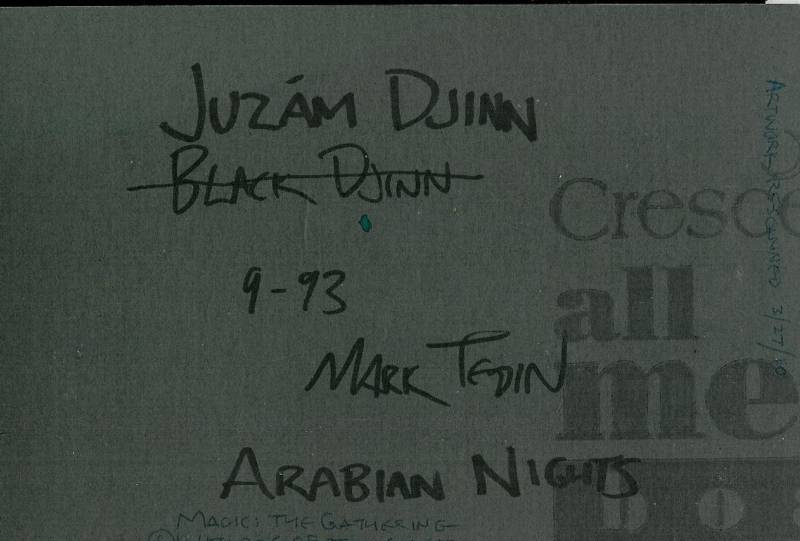 JUZÁM DJINN
BLACK DJINN
9-93
MARK TEDIN
ARABIAN NIGHTS
MAGIC: THE GATHERING
Cresce
all
me
boa
ARTWORK RESCANNED 3/27/10